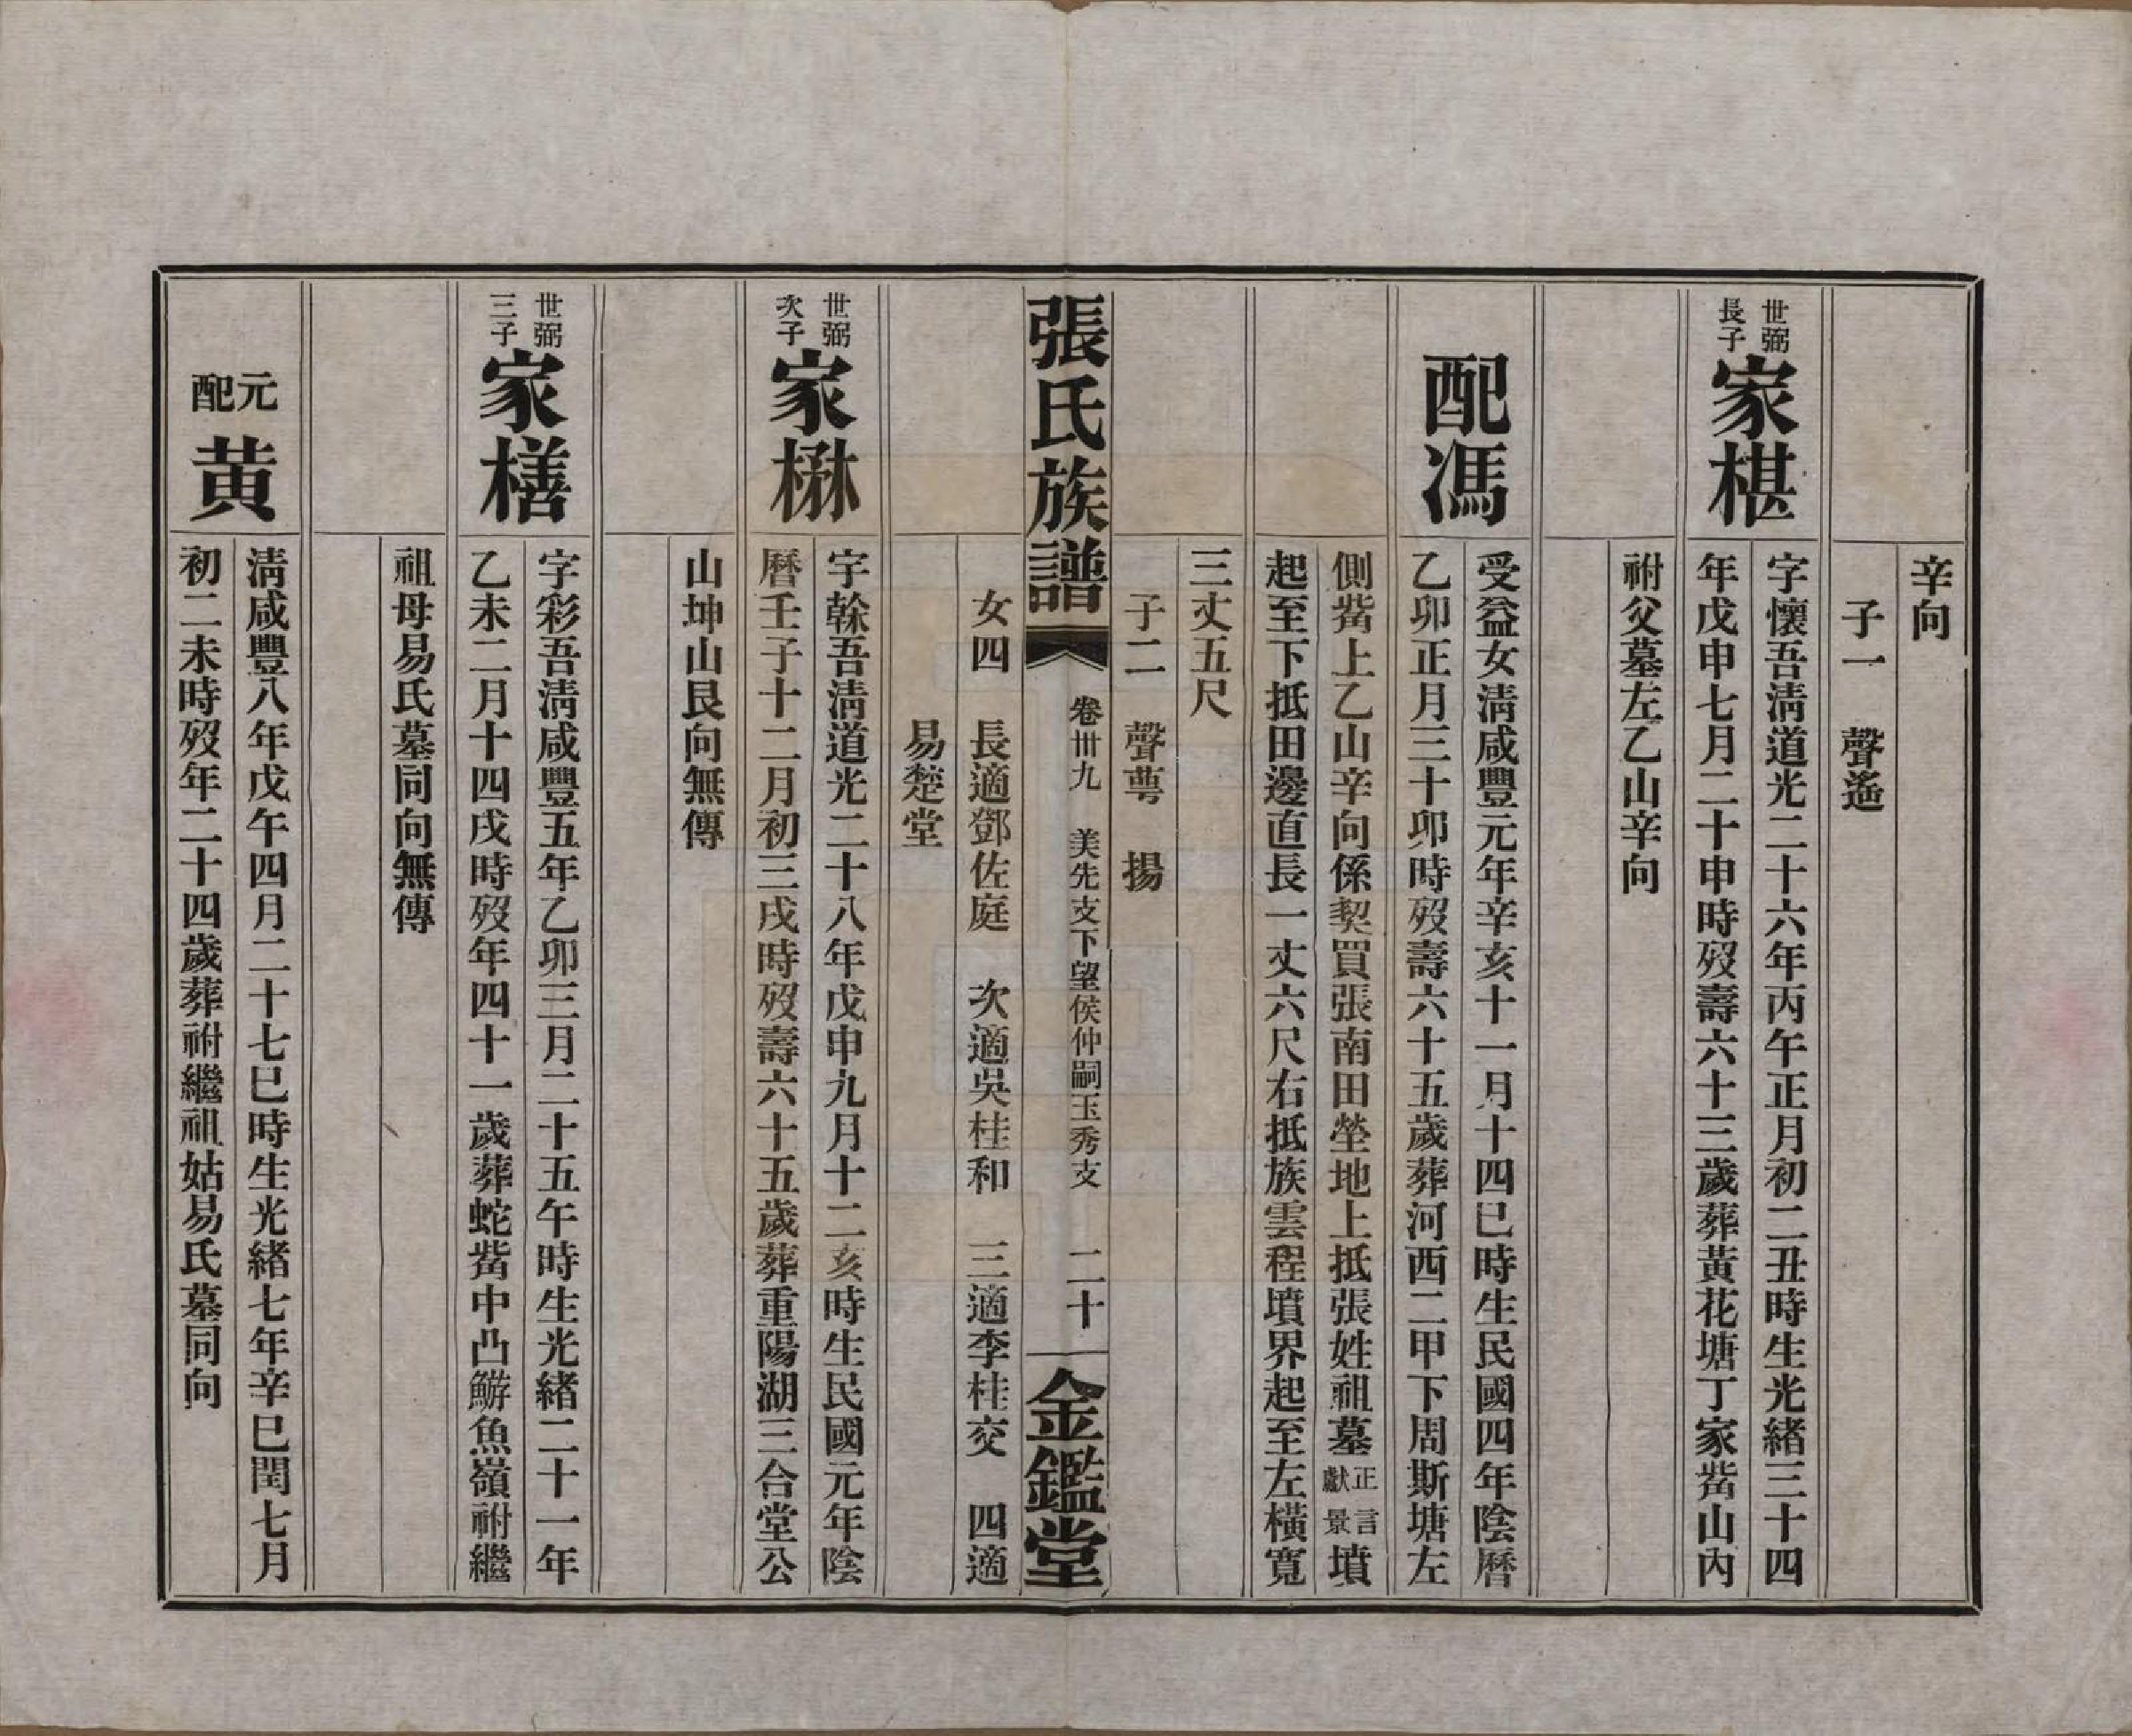 辛向
子一　聲遙
世弼長子
家椹
字懷吾淸道光二十六年丙午正月初二丑時生光緒三十四
年戊申七月二十申時歿壽六十三歲葬黃花塘丁家嵴山內
祔父墓左乙山辛向
配馮
受益女淸咸豐元年辛亥十一月十四巳時生民國四年陰曆
乙卯正月三十卯時歿壽六十五歲葬河西二甲下周斯塘左
側嵴上乙山辛向係契買張南田塋地上抵張姓祖墓正言獻景墳
起至下抵田邊直長一丈六尺右抵族雲程墳界起至左橫寬
三丈五尺
子二　聲萼　揚
張氏族譜　卷卅九　美先支下望侯仲嗣玉秀支　二十　金鑑堂
女四　長適鄧佐庭　次適吳桂和　三適李桂交　四適
易楚堂
世弼次子
家楙
字榦吾淸道光二十八年戊申九月十二亥時生民國元年陰
曆壬子十二月初三戌時歿壽六十五歲葬重陽湖三合堂公
山坤山艮向無傳
世弼三子
家橏
字彩吾淸咸豐五年乙卯三月二十五午時生光緒二十一年
乙未二月十四戌時歿年四十一歲葬蛇嵴中凸鰗魚嶺祔繼
祖母易氏墓同向無傳
元配
黄
淸咸豐八年戊午四月二十七巳時生光緒七年辛巳閏七月
初二未時歿年二十四歲葬祔繼祖姑易氏墓同向